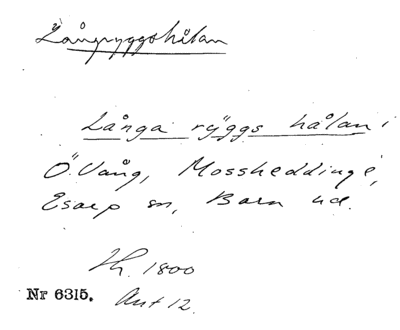 Långryggshålan
Långa rÿggs hålan i
Ö. Vång, Mossheddinge,
Esarp sn, Bara hd.
Lh. 1800
Nr 6315. Akt 12.